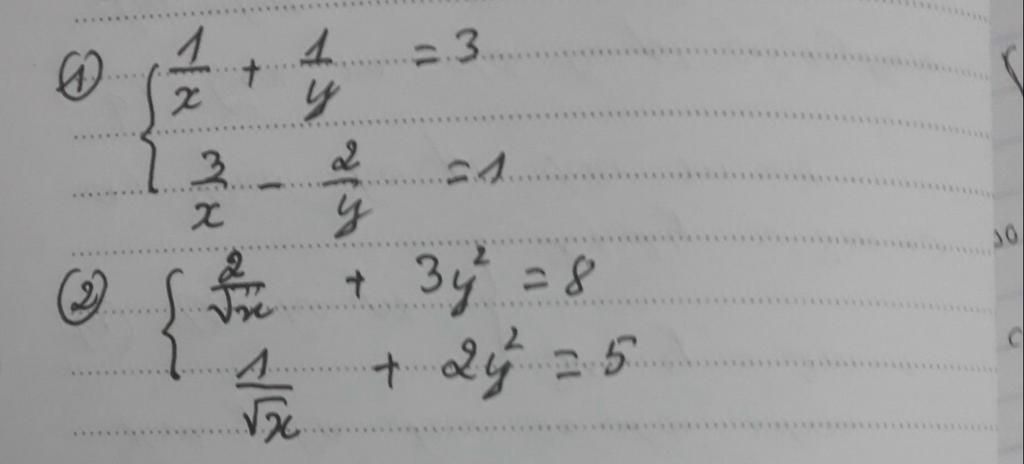 ① { 1/x + 1/y = 3
3/x - 2/y = 1
② { 2/√x + 3y² = 8
1/√x + 2y² = 5